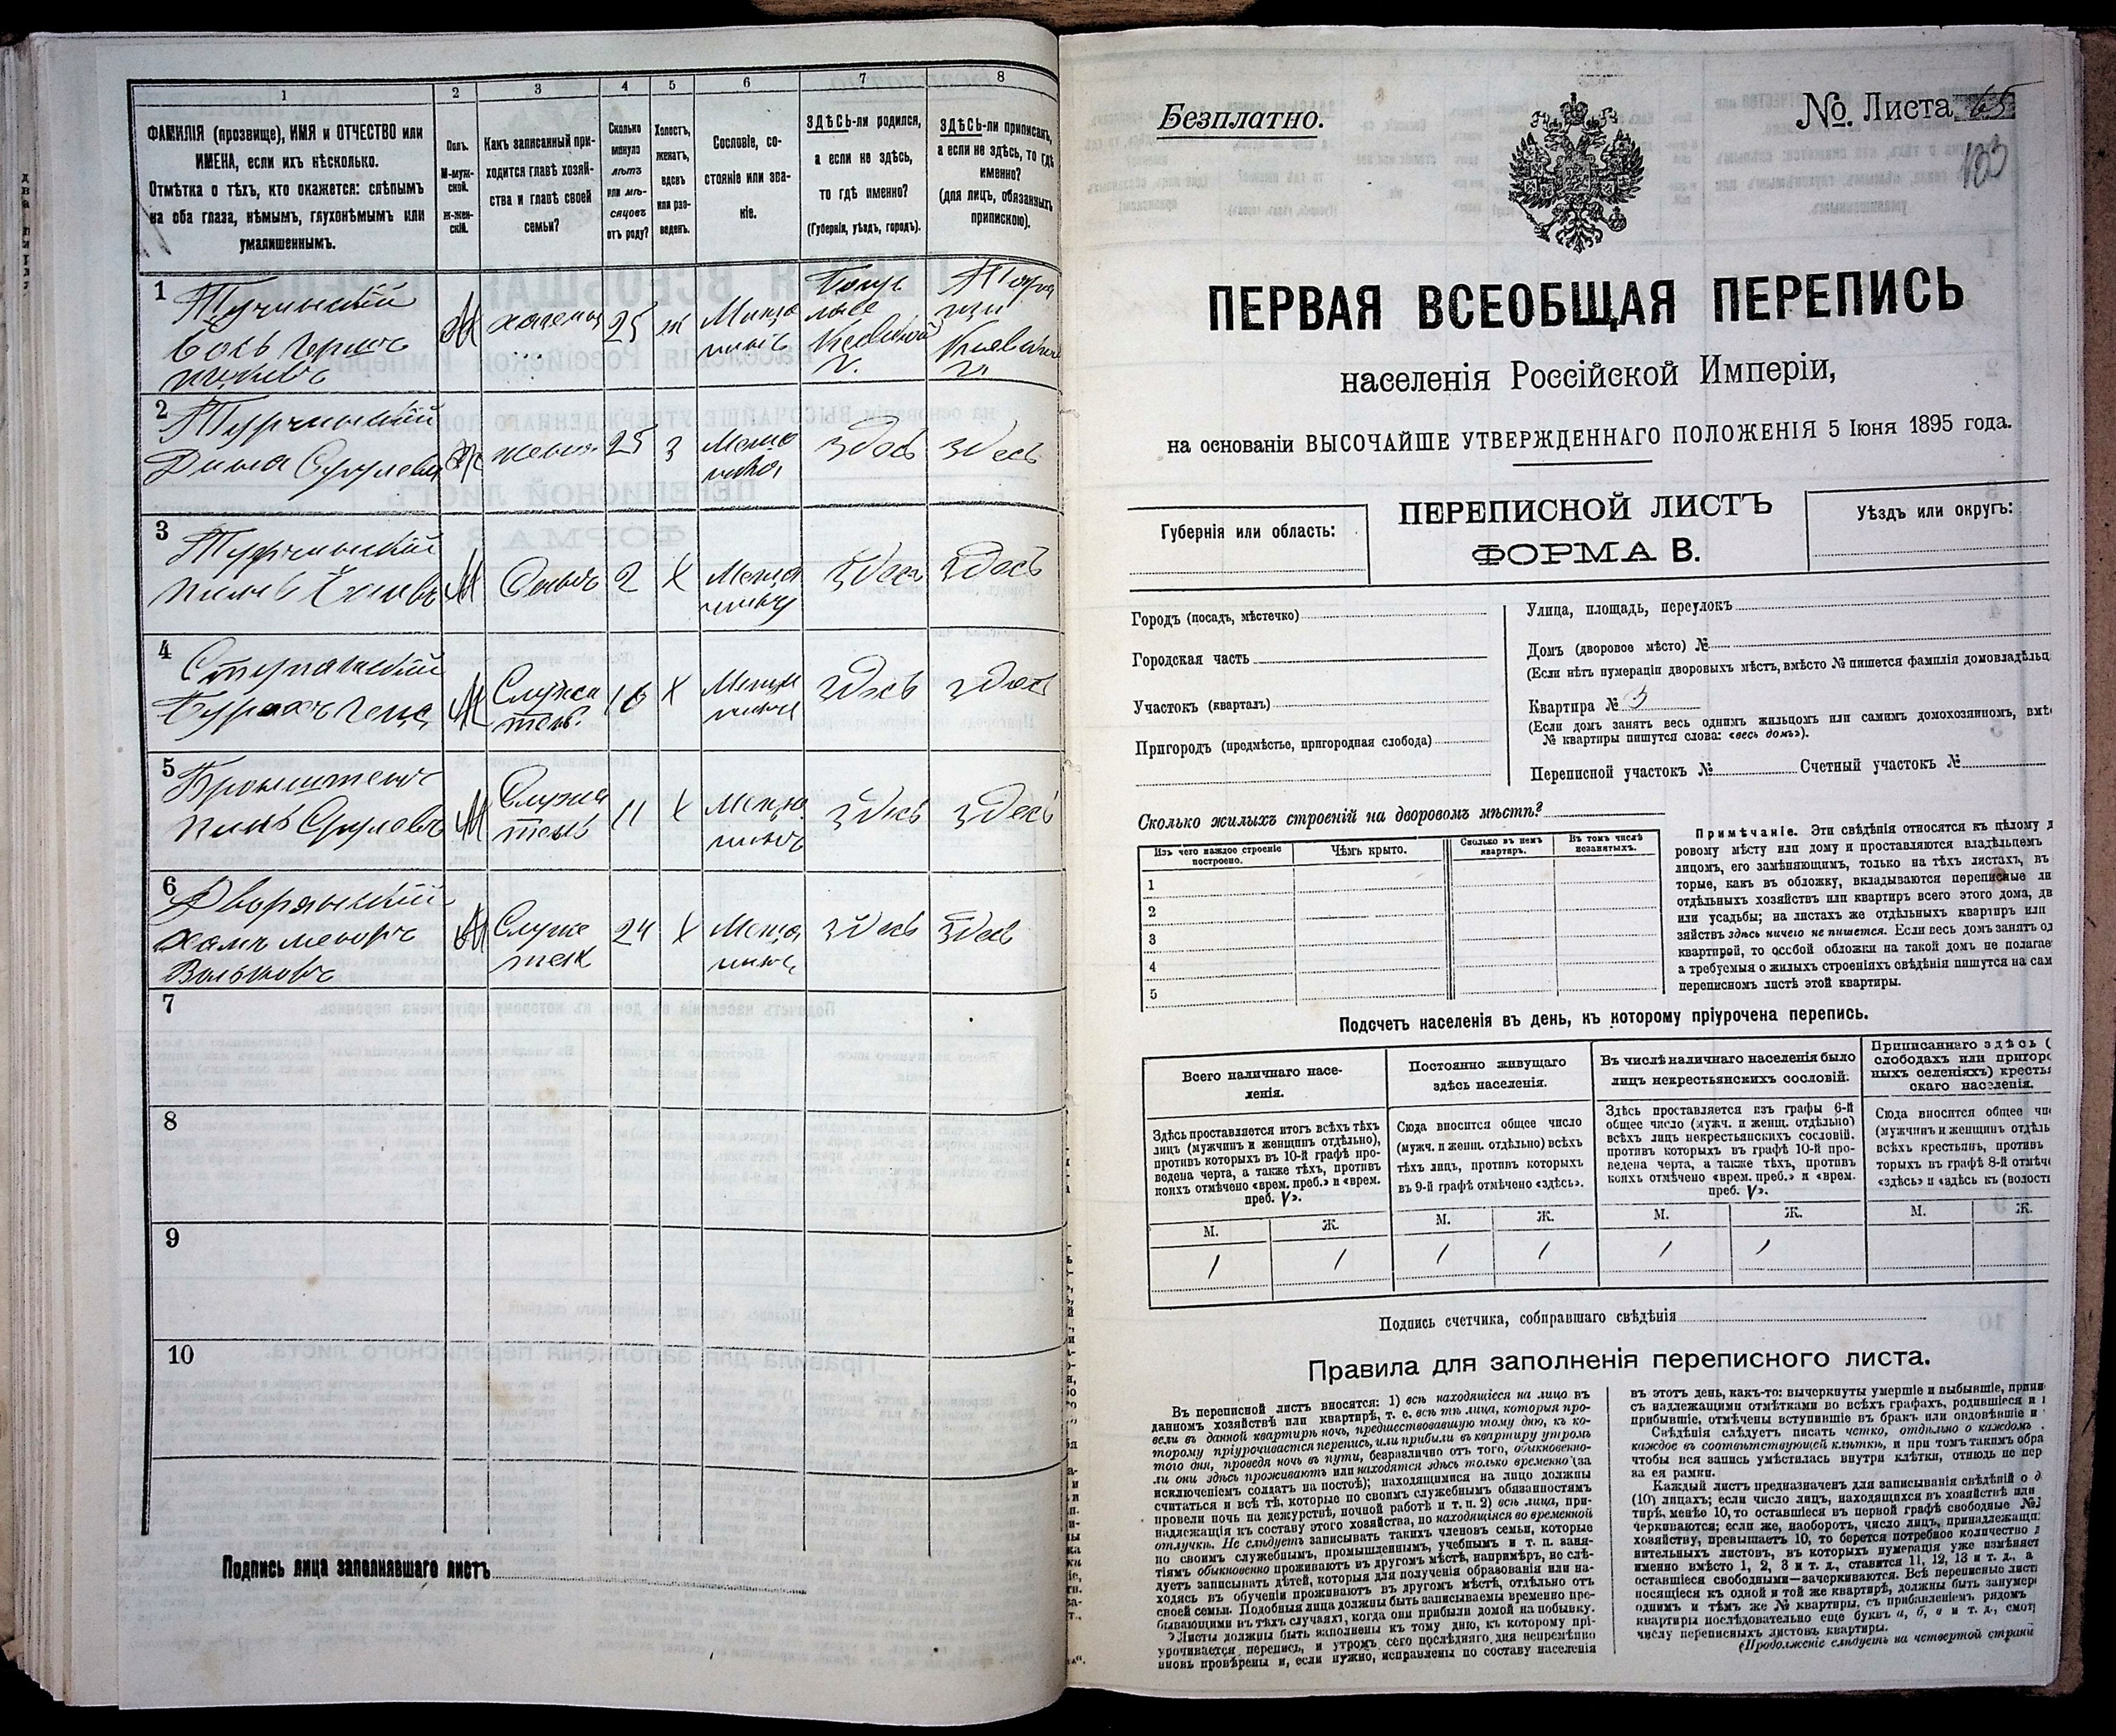 1
2
3
4
5
6
7
8
ФАМИЛІЯ (прозвище), ИМЯ и ОТЧЕСТВО или
ИМЕНА, если ихъ нѣсколько.
Отмѣтка о тѣхъ, кто окажется: слѣпымъ
на оба глаза, нѣмымъ, глухонѣмымъ или
умалишеннымъ.
Полъ.
М-муж-
ской.
Ж-жен-
скій.
Какъ записанный при-
ходится главѣ хозяй-
ства и главѣ своей
семьи?
Сколько
минуло
лѣтъ
или мѣ-
сяцовъ
отъ роду?
Холостъ,
женатъ,
вдовъ
или раз-
веденъ.
Сословіе, со-
стояніе или зва-
ніе.
ЗДѢСЬ-ли родился,
а если не здѣсь,
то гдѣ именно?
(Губернія, уѣздъ, городъ).
ЗДѢСЬ-ли приписанъ,
а если не здѣсь, то гдѣ
именно?
(для лицъ, обязанныхъ
припискою).
1
М
25
ж
2
25
З
здесь
здесь
3
М
2
Х
здесь
здесь
4
М
Служи
тель
16
Х
здесь
здесь
5
Бронштейнъ
М
Служи
тель
11
Х
здесь
здесь
6
Дворянский
М
Служи
тель
24
Х
здесь
здесь
7
8
9
10
Подпись лица заполнявшаго листъ
Безплатно.
№ Листа 65
133
ПЕРВАЯ ВСЕОБЩАЯ ПЕРЕПИСЬ
населенія Россійской Имперіи,
на основаніи ВЫСОЧАЙШЕ УТВЕРЖДЕННАГО ПОЛОЖЕНІЯ 5 Іюня 1895 года.
Губернія или область:
ПЕРЕПИСНОЙ ЛИСТЪ
ФОРМА В.
Уѣздъ или округъ:
Городъ (посадъ, мѣстечко)
Городская часть
Участокъ (кварталъ)
Пригородъ (предмѣстье, пригородная слобода)
Улица, площадь, переулокъ
Домъ (дворовое мѣсто) №
(Если нѣтъ нумераціи дворовыхъ мѣстъ, вмѣсто № пишется фамилія домовладѣльц
Квартира № 3
(Если домъ занятъ весь однимъ жильцомъ или самимъ домохозяиномъ, вмѣ
№ квартиры пишутся слова: «весь домъ»).
Переписной участокъ № Счетный участокъ №
Сколько жилыхъ строеній на дворовомъ мѣстѣ?
Изъ чего каждое строеніе
построено.
Чѣмъ крыто.
Сколько въ немъ
квартиръ.
Въ томъ числѣ
незанятыхъ.
1
2
3
4
5
Примѣчаніе. Эти свѣдѣнія относятся къ цѣлому д
ровому мѣсту или дому и проставляются владѣльцемъ
лицомъ, его замѣняющимъ, только на тѣхъ листахъ, въ
торые, какъ въ обложку, вкладываются переписные ли
отдѣльныхъ хозяйствъ или квартиръ всего этого дома, дв
или усадьбы; на листахъ же отдѣльныхъ квартиръ или
зяйствъ здѣсь ничего не пишется. Если весь домъ занятъ од
квартирой, то особой обложки на такой домъ не полагае
а требуемыя о жилыхъ строеніяхъ свѣдѣнія пишутся на сам
переписномъ листѣ этой квартиры.
Подсчетъ населенія въ день, къ которому пріурочена перепись.
Всего наличнаго насе-
ленія.
Постоянно живущаго
здѣсь населенія.
Въ числѣ наличнаго населенія было
лицъ некрестьянскихъ сословій.
Приписаннаго здѣсь (
слободахъ или пригоро
ныхъ селеніяхъ) крестья
скаго населенія.
Здѣсь проставляется итогъ всѣхъ тѣхъ
лицъ (мужчинъ и женщинъ отдѣльно),
противъ которыхъ въ 10-й графѣ про-
ведена черта, а также тѣхъ, противъ
коихъ отмѣчено «врем. преб.» и «врем.
преб. V».
Сюда вносится общее число
(мужч. и женщ. отдѣльно) всѣхъ
тѣхъ лицъ, противъ которыхъ
въ 9-й графѣ отмѣчено «здѣсь».
Здѣсь проставляется изъ графы 6-й
общее число (мужч. и женщ. отдѣльно)
всѣхъ лицъ некрестьянскихъ сословій.
противъ которыхъ въ графѣ 10-й про-
ведена черта, а также тѣхъ, противъ
коихъ отмѣчено «врем. преб.» и «врем.
преб. V».
Сюда вносится общее чис
(мужчинъ и женщинъ отдѣль
всѣхъ крестьянъ, противъ
торыхъ въ графѣ 8-й отмѣче
«здѣсь» и «здѣсь къ (волост
М. Ж. М. Ж. М. Ж. М. Ж.
1 1 1 1 1 1
Подпись счетчика, собиравшаго свѣдѣнія
Правила для заполненія переписного листа.
Въ переписной листъ вносятся: 1) всѣ находящіеся на лицо въ
данномъ хозяйствѣ или квартирѣ, т. е. всѣ тѣ лица, которыя про-
вели въ данной квартирѣ ночь, предшествовавшую тому дню, къ ко-
торому пріурочивается перепись, или прибыли въ квартиру утромъ
того дня, проведя ночь въ пути, безразлично отъ того, обыкновенно-
ли они здѣсь проживаютъ или находятся здѣсь только временно (за
исключеніемъ солдатъ на постоѣ); находящимися на лицо должны
считаться и всѣ тѣ, которые по своимъ служебнымъ обязанностямъ
провели ночь на дежурствѣ, ночной работѣ и т. п. 2) всѣ лица, при-
надлежащія къ составу этого хозяйства, но находящіяся во временной
отлучкѣ. Не слѣдуетъ записывать такихъ членовъ семьи, которые
по своимъ служебнымъ, промышленнымъ, учебнымъ и т. п. заня-
тіямъ обыкновенно проживаютъ въ другомъ мѣстѣ, напримѣръ, не слѣ-
дуетъ записывать дѣтей, которыя для полученія образованія или на-
ходясь въ обученіи проживаютъ въ другомъ мѣстѣ, отдѣльно отъ
своей семьи. Подобныя лица должны быть записываемы временно пре-
бывающими въ тѣхъ случаяхъ, когда они прибыли домой на побывку.
Листы должны быть наполнены къ тому дню, къ которому прі-
урочивается перепись, и утромъ сего послѣдняго дня непремѣнно
вновь провѣрены и, если нужно, исправлены по составу населенія
въ этотъ день, какъ-то: вычеркнуты умершіе и выбывшіе, припи
съ надлежащими отмѣтками во всѣхъ графахъ, родившіеся и
прибывшіе, отмѣчены вступившіе въ бракъ или овдовѣвшіе и
Свѣдѣнія слѣдуетъ писать четко, отдѣльно о каждомъ
каждое въ соотвѣтствующей клѣткѣ, и при томъ такимъ обра
чтобы вся запись умѣстилась внутри клѣтки, отнюдь не пер
за ея рамки.
Каждый листъ предназначенъ для записыванія свѣдѣній о д
(10) лицахъ; если число лицъ, находящихся въ хозяйствѣ или
тирѣ, менѣе 10, то оставшіеся въ первой графѣ свободные №
черкиваются; если же, наоборотъ, число лицъ, принадлежащи
хозяйству, превышаетъ 10, то берется потребное количество д
нительныхъ листовъ, въ которыхъ нумерація уже измѣняет
именно вмѣсто 1, 2, 3 и т. д., ставится 11, 12, 13 и т. д., а
оставшіеся свободными—зачеркиваются. Всѣ переписные лист
носящіеся къ одной и той же квартирѣ, должны быть занумер
однимъ и тѣмъ же № квартиры, съ прибавленіемъ рядомъ
квартиры послѣдовательно еще буквъ а, б, в и т. д., смот
числу переписныхъ листовъ квартиры.
(Продолженіе слѣдуетъ на четвертой страни